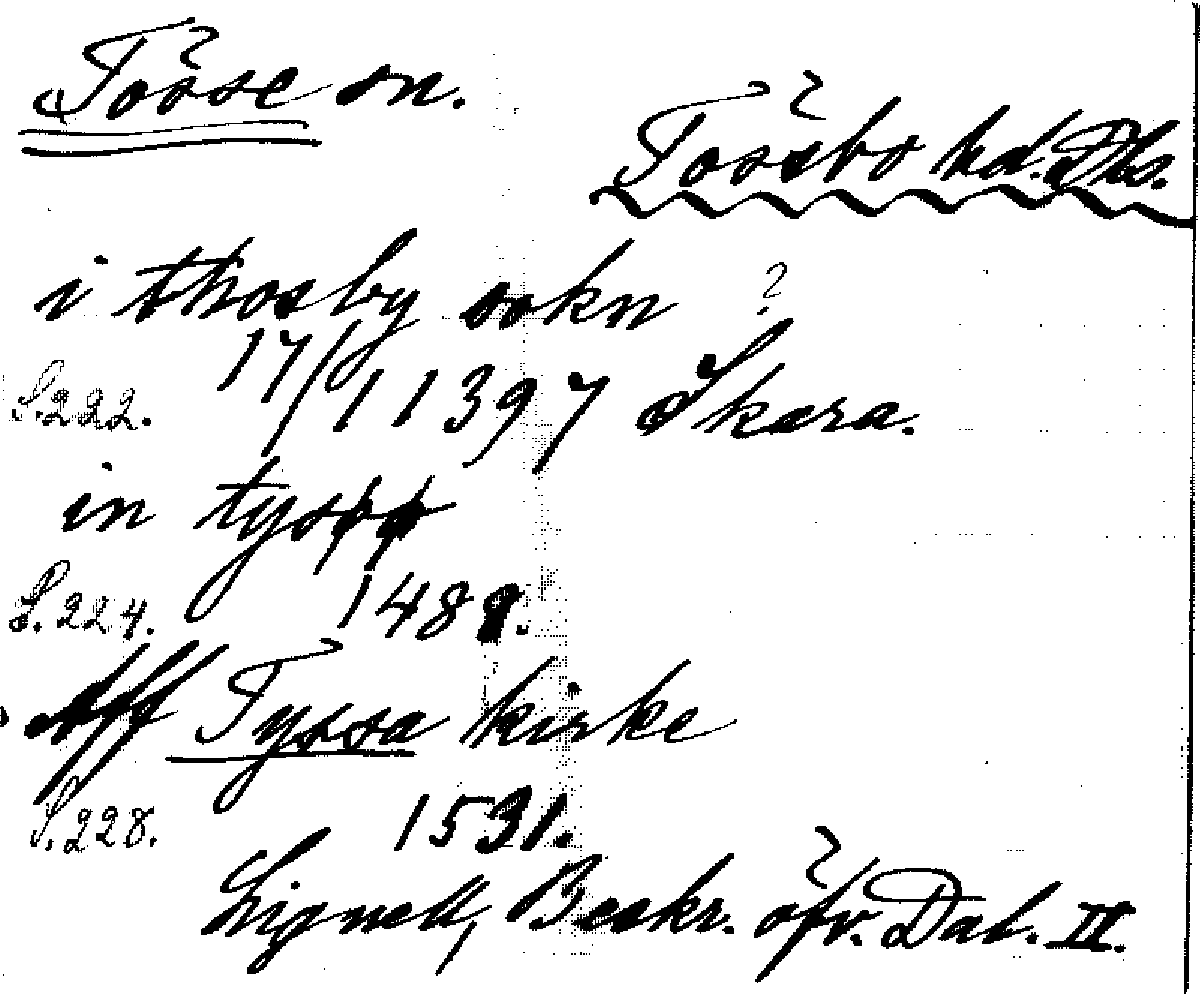 Tösse sn.
Tössbo hd. Dls.
i thosby sokn ?
S. 222. 17/11 1397 Skara.
in tyss
S. 224. 1481.
Aff Tyssa kirke
S. 228. 1531.
Lignell, Beskr. öfv. Dal. II.